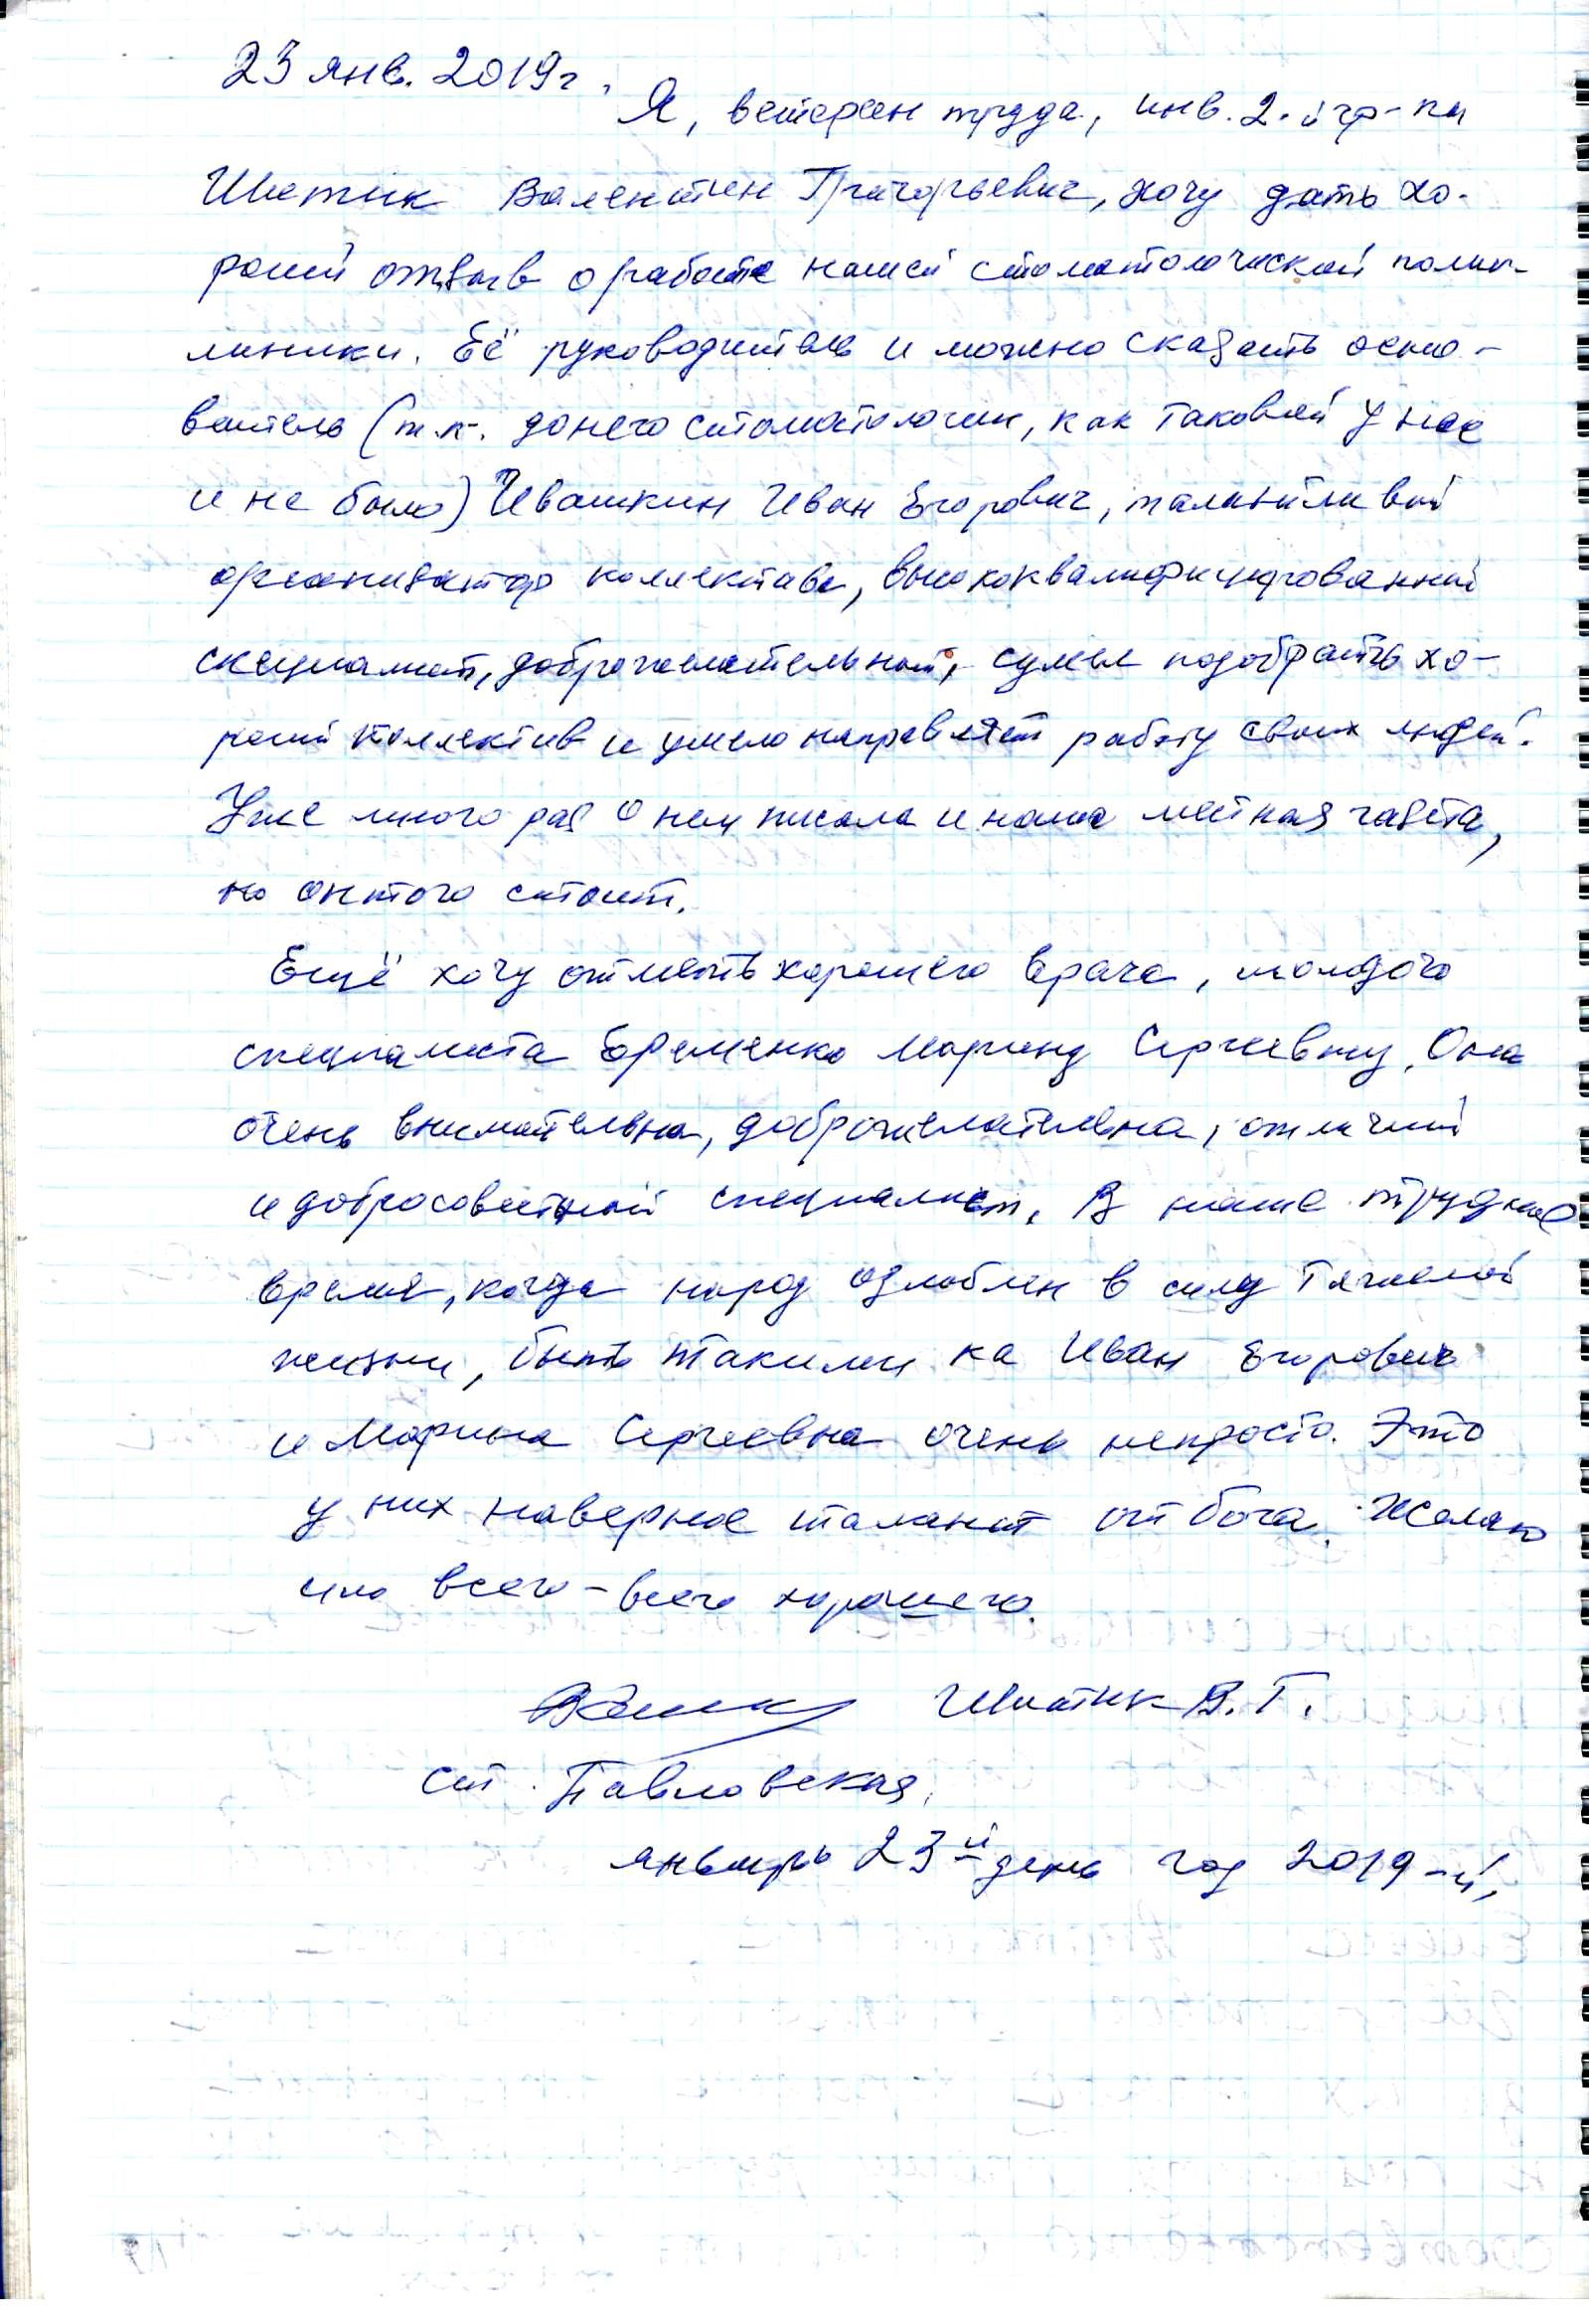 23 янв. 2019г.
Я, ветеран труда, инв. 2-й гр-пы
Валентин Григорьевич, хочу дать хо-
роший отзыв о работе нашей стоматологической полик-
линики. Её руководитель и можно сказать осно-
ватель (т.к. до него стоматологии, как таковой у нас
и не было) Ивашкин Иван Егорович, талантливый
организатор коллектива, высококвалифицированный
специалист, доброжелательный, сумел подобрать хо-
роший коллектив и умело направляет работу своих людей.
Уже много раз о нем писала и наша местная газета,
но он того стоит.
Ещё хочу отметить хорошего врача, молодого
специалиста Еременко Марину Сергеевну. Она
очень внимательна, доброжелательна, отличный
и добросовестный специалист. В наше трудное
время, когда народ озлоблен в силу тяжелой
жизни, быть такими ка Иван Егорович
и Марина Сергеевна очень непросто. Это
у них наверное талант от бога. Желаю
им всего-всего хорошего.
В.Г.
ст. Павловская.
январь 23й день год 2019-й.